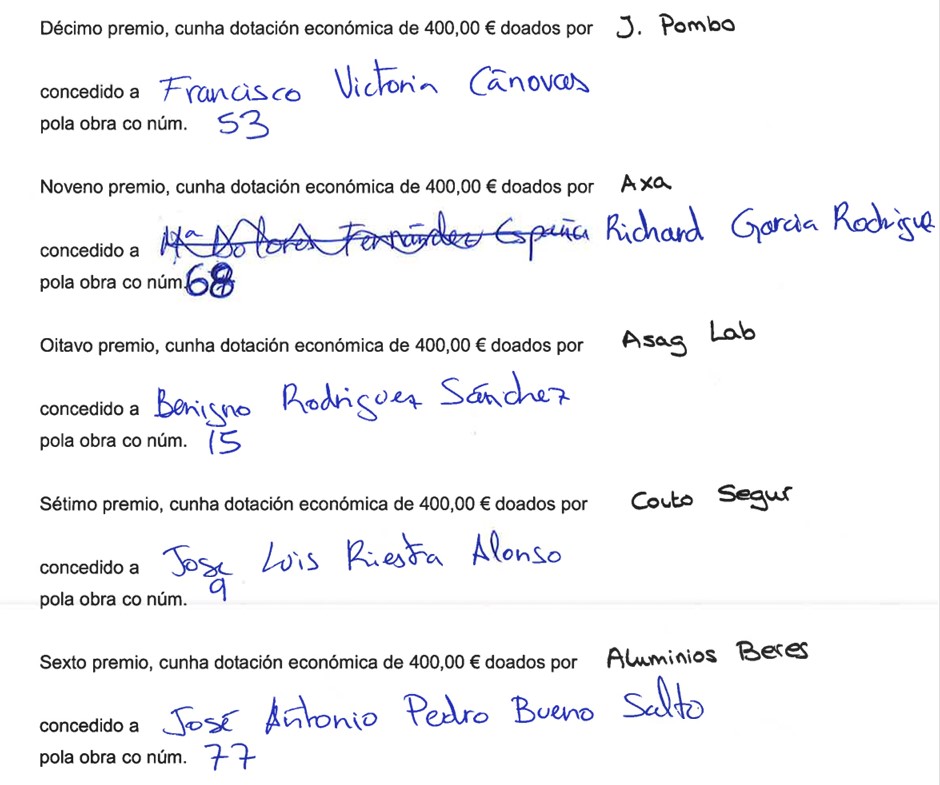 Décimo premio, cunha dotación económica de 400,00 € doados por J. Pombo
concedido a Francisco Victoria Cánovas
pola obra co núm. 53
Noveno premio, cunha dotación económica de 400,00 € doados por Axa
concedido a Mª Dolores Fernández España Richard Garcia Rodrigue
pola obra co núm. 68
Oitavo premio, cunha dotación económica de 400,00 € doados por Asag Lab
concedido a Benigno Rodriguez Sánchez
pola obra co núm. 15
Sétimo premio, cunha dotación económica de 400,00 € doados por Couto Segur
concedido a Jose Luis Riestra Alonso
pola obra co núm. 9
Sexto premio, cunha dotación económica de 400,00 € doados por Aluminios Beres
concedido a José Antonio Pedro Bueno Salto
pola obra co núm. 77